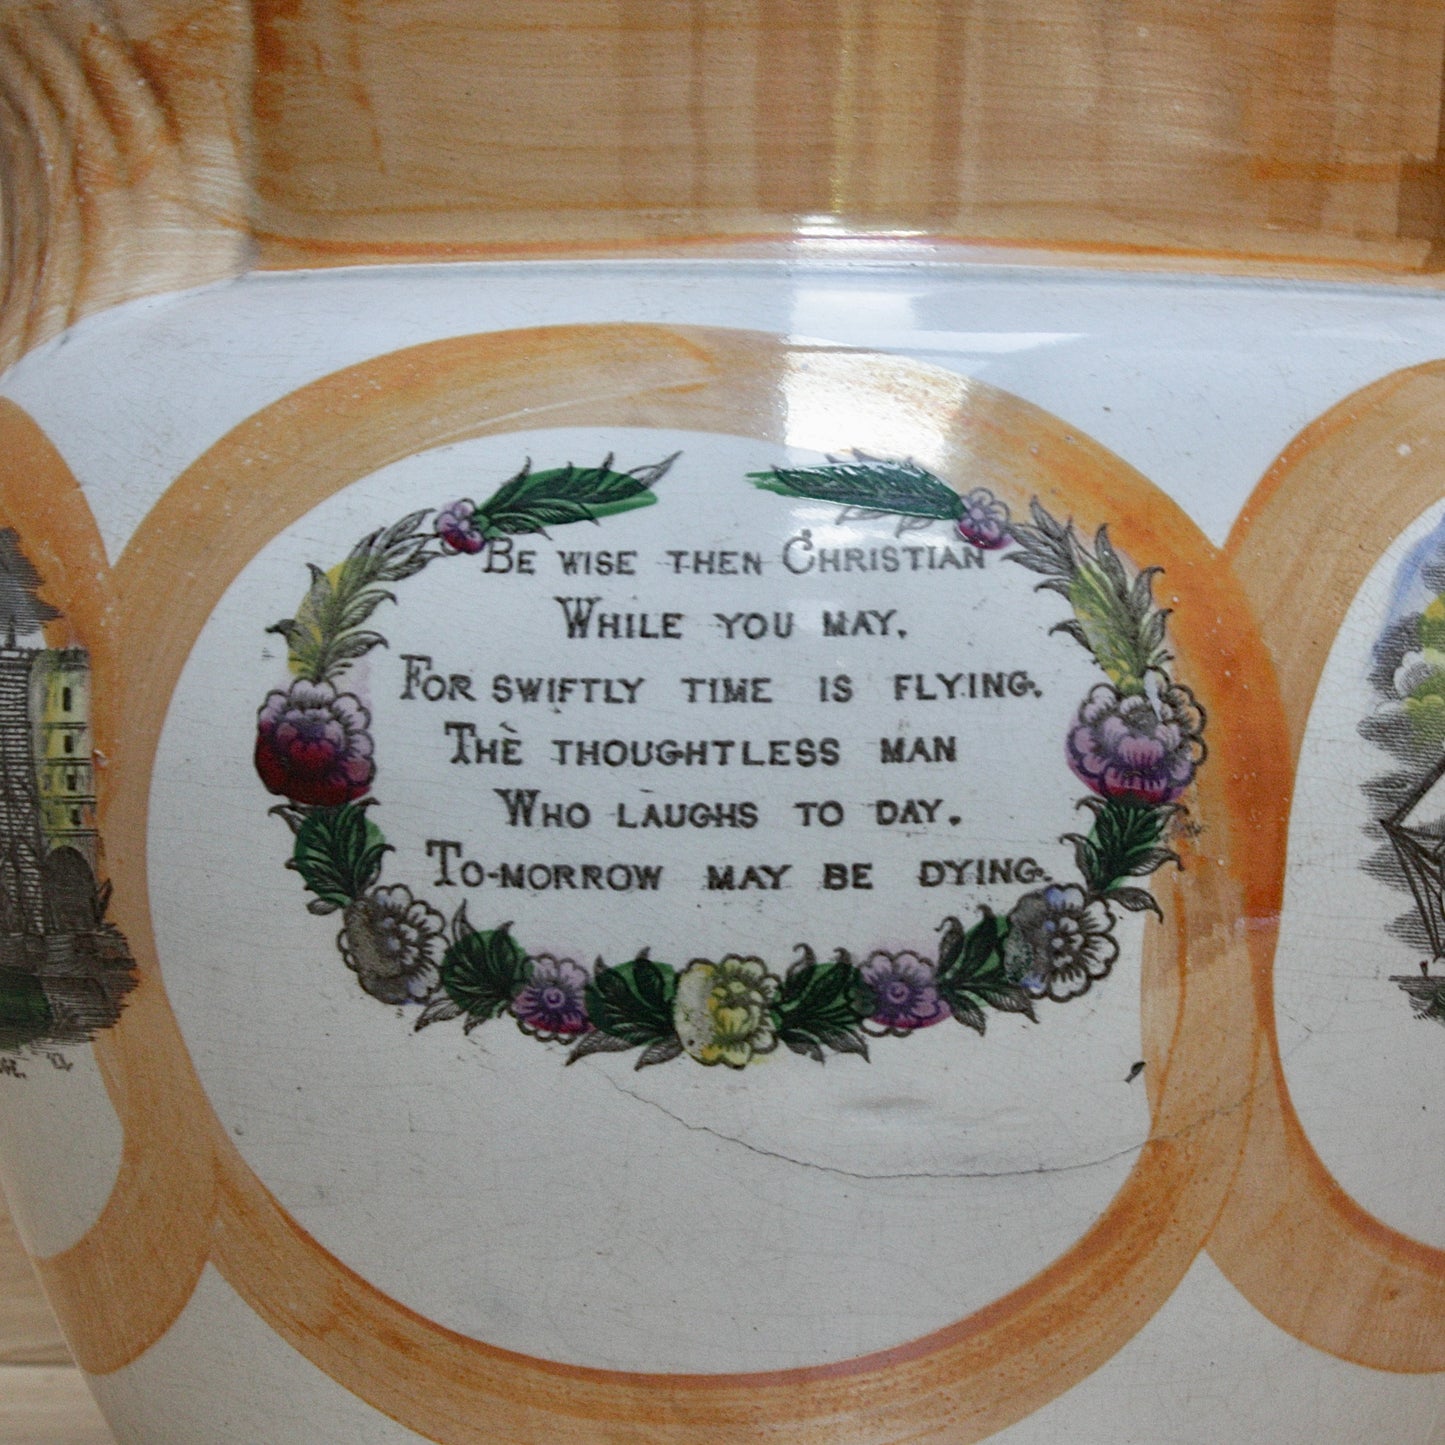 Be wise then Christian
While you may,
For swiftly time is flying.
The thoughtless man
Who laughs to day,
To-morrow may be dying.